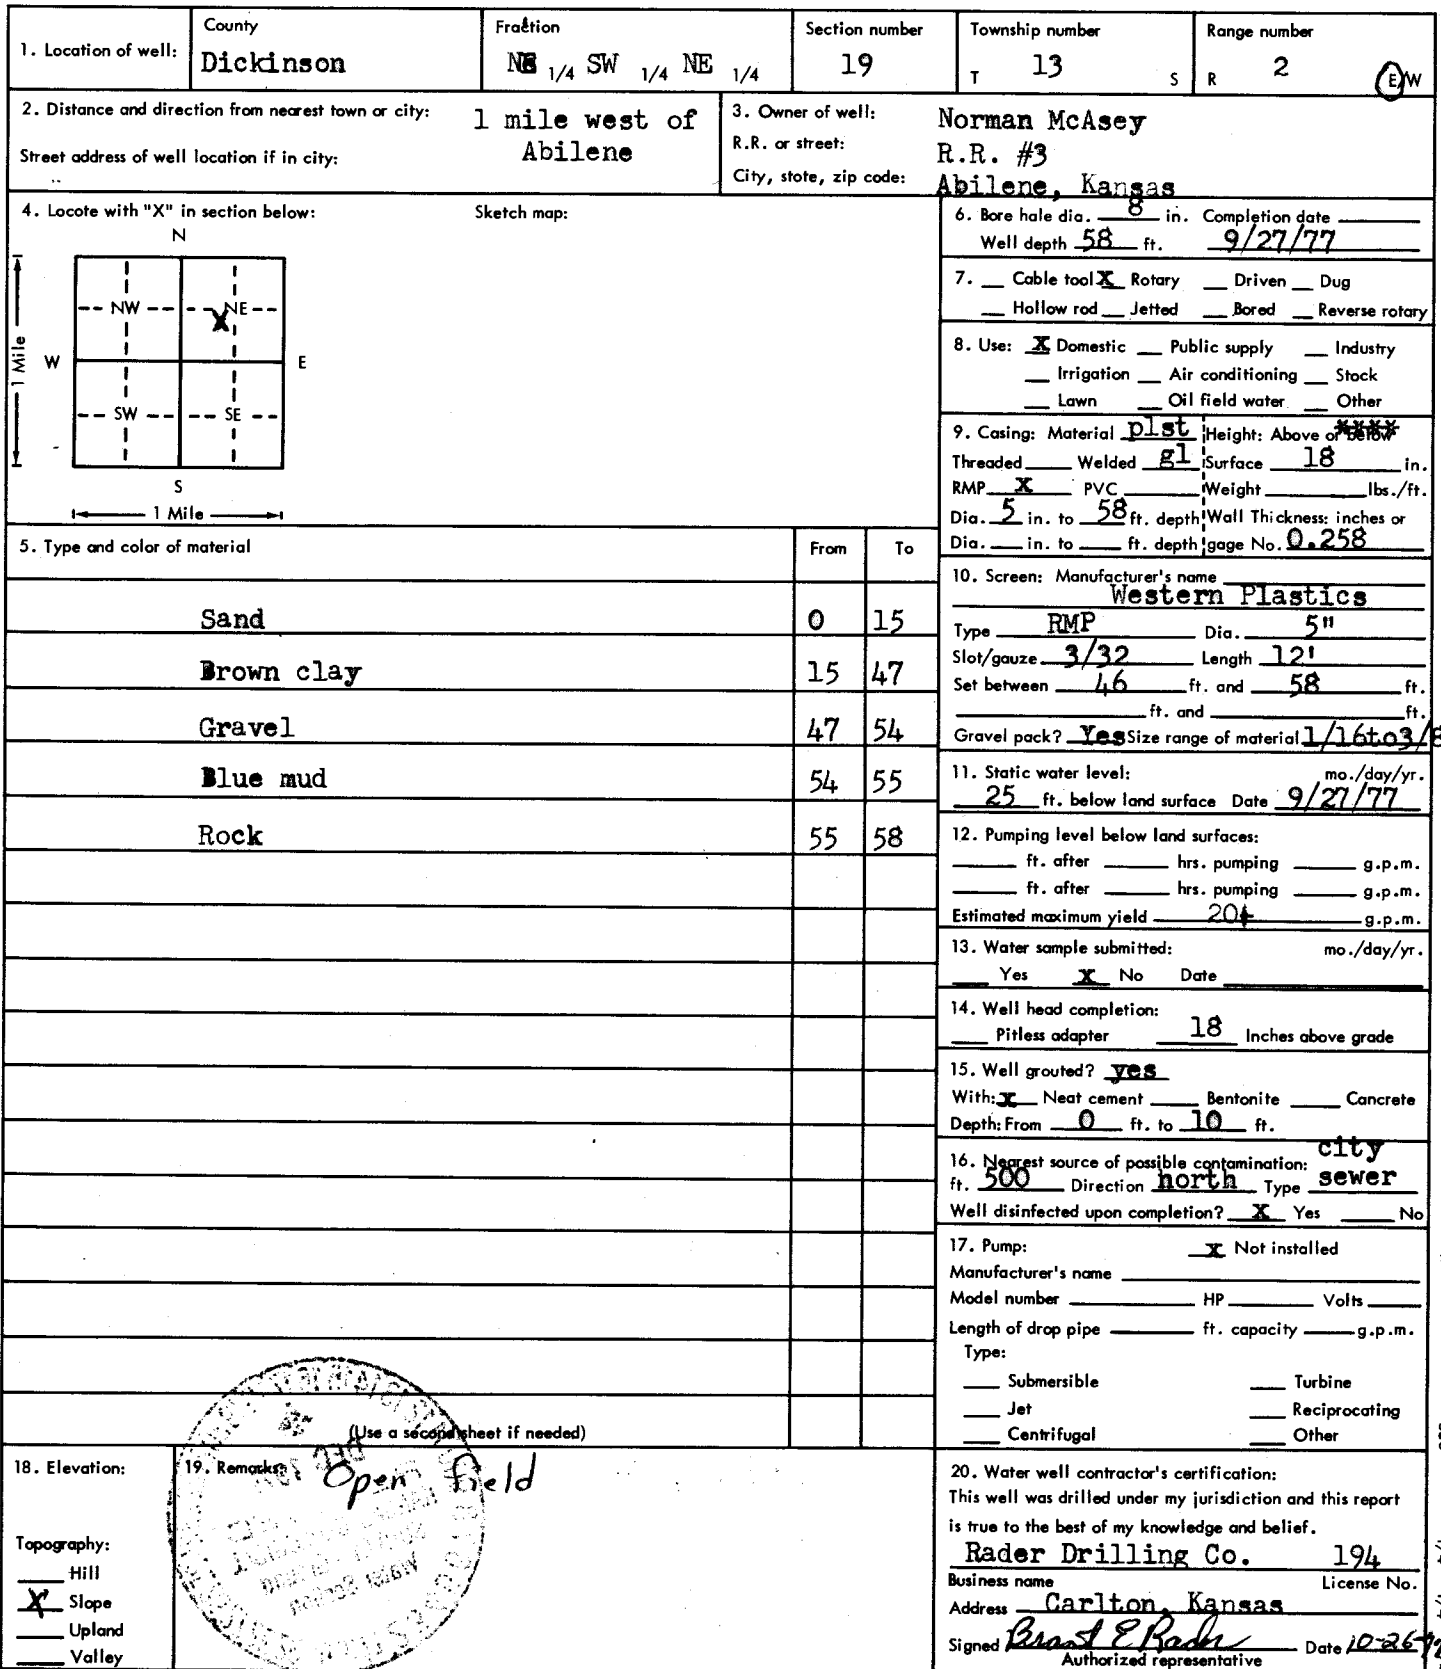 1. Location of well:
County
Dickinson
Fraction
NE 1/4 SW 1/4 NE 1/4
Section number
19
Township number
T 13 S
Range number
R 2 E/W
2. Distance and direction from nearest town or city: 1 mile west of
Abilene
Street address of well location if in city:
3. Owner of well: Norman McAsey
R.R. or street: R.R. #3
City, state, zip code: Abilene, Kansas
4. Locate with "X" in section below:
Sketch map:
N
NW NE
X
1 Mile
W E
SW SE
S
1 Mile
5. Type and color of material From To
Sand 0 15
Brown clay 15 47
Gravel 47 54
Blue mud 54 55
Rock 55 58
(Use a second sheet if needed)
6. Bore hole dia. 8 in. Completion date
Well depth 58 ft. 9/27/77
7. Cable tool X Rotary Driven Dug
Hollow rod Jetted Bored Reverse rotary
8. Use: X Domestic Public supply Industry
Irrigation Air conditioning Stock
Lawn Oil field water Other
9. Casing: Material plst Height: Above or below
Threaded Welded gl Surface 18 in.
RMP X PVC Weight lbs./ft.
Dia. 5 in. to 58 ft. depth Wall Thickness: inches or
Dia. in. to ft. depth gage No. 0.258
10. Screen: Manufacturer's name
Western Plastics
Type RMP Dia. 5"
Slot/gauze 3/32 Length 12'
Set between 46 ft. and 58 ft.
ft. and ft.
Gravel pack? Yes Size range of material 1/16to3/8
11. Static water level: mo./day/yr.
25 ft. below land surface Date 9/27/77
12. Pumping level below land surfaces:
ft. after hrs. pumping g.p.m.
ft. after hrs. pumping g.p.m.
Estimated maximum yield 20+ g.p.m.
13. Water sample submitted: mo./day/yr.
Yes X No Date
14. Well head completion:
Pitless adapter 18 Inches above grade
15. Well grouted? yes
With: x Neat cement Bentonite Concrete
Depth: From 0 ft. to 10 ft.
16. Nearest source of possible contamination: city
ft. 500 Direction north Type sewer
Well disinfected upon completion? X Yes No
17. Pump: X Not installed
Manufacturer's name
Model number HP Volts
Length of drop pipe ft. capacity g.p.m.
Type:
Submersible Turbine
Jet Reciprocating
Centrifugal Other
18. Elevation:
Topography:
Hill
X Slope
Upland
Valley
19. Remarks: Open field
20. Water well contractor's certification:
This well was drilled under my jurisdiction and this report
is true to the best of my knowledge and belief.
Rader Drilling Co. 194
Business name License No.
Address Carlton, Kansas
Signed Brant E Rader Date 10-26-77
Authorized representative